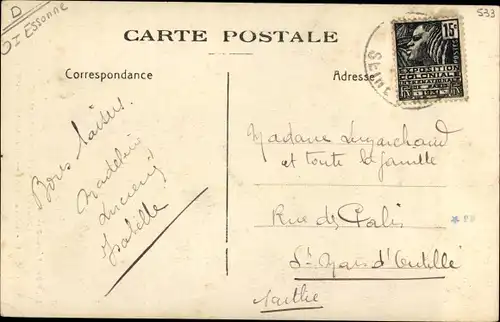 D
SI Essonne
533
CARTE POSTALE
Correspondance
Adresse
SEINE
15c
EXPOSITION
COLONIALE
INTERNATIONALE
PARIS
1931
Bons baisers
Madeleine
Lucien
Isabelle
Madame
et toute la famille
Rue des
St Mars d'Outillé
Sarthe